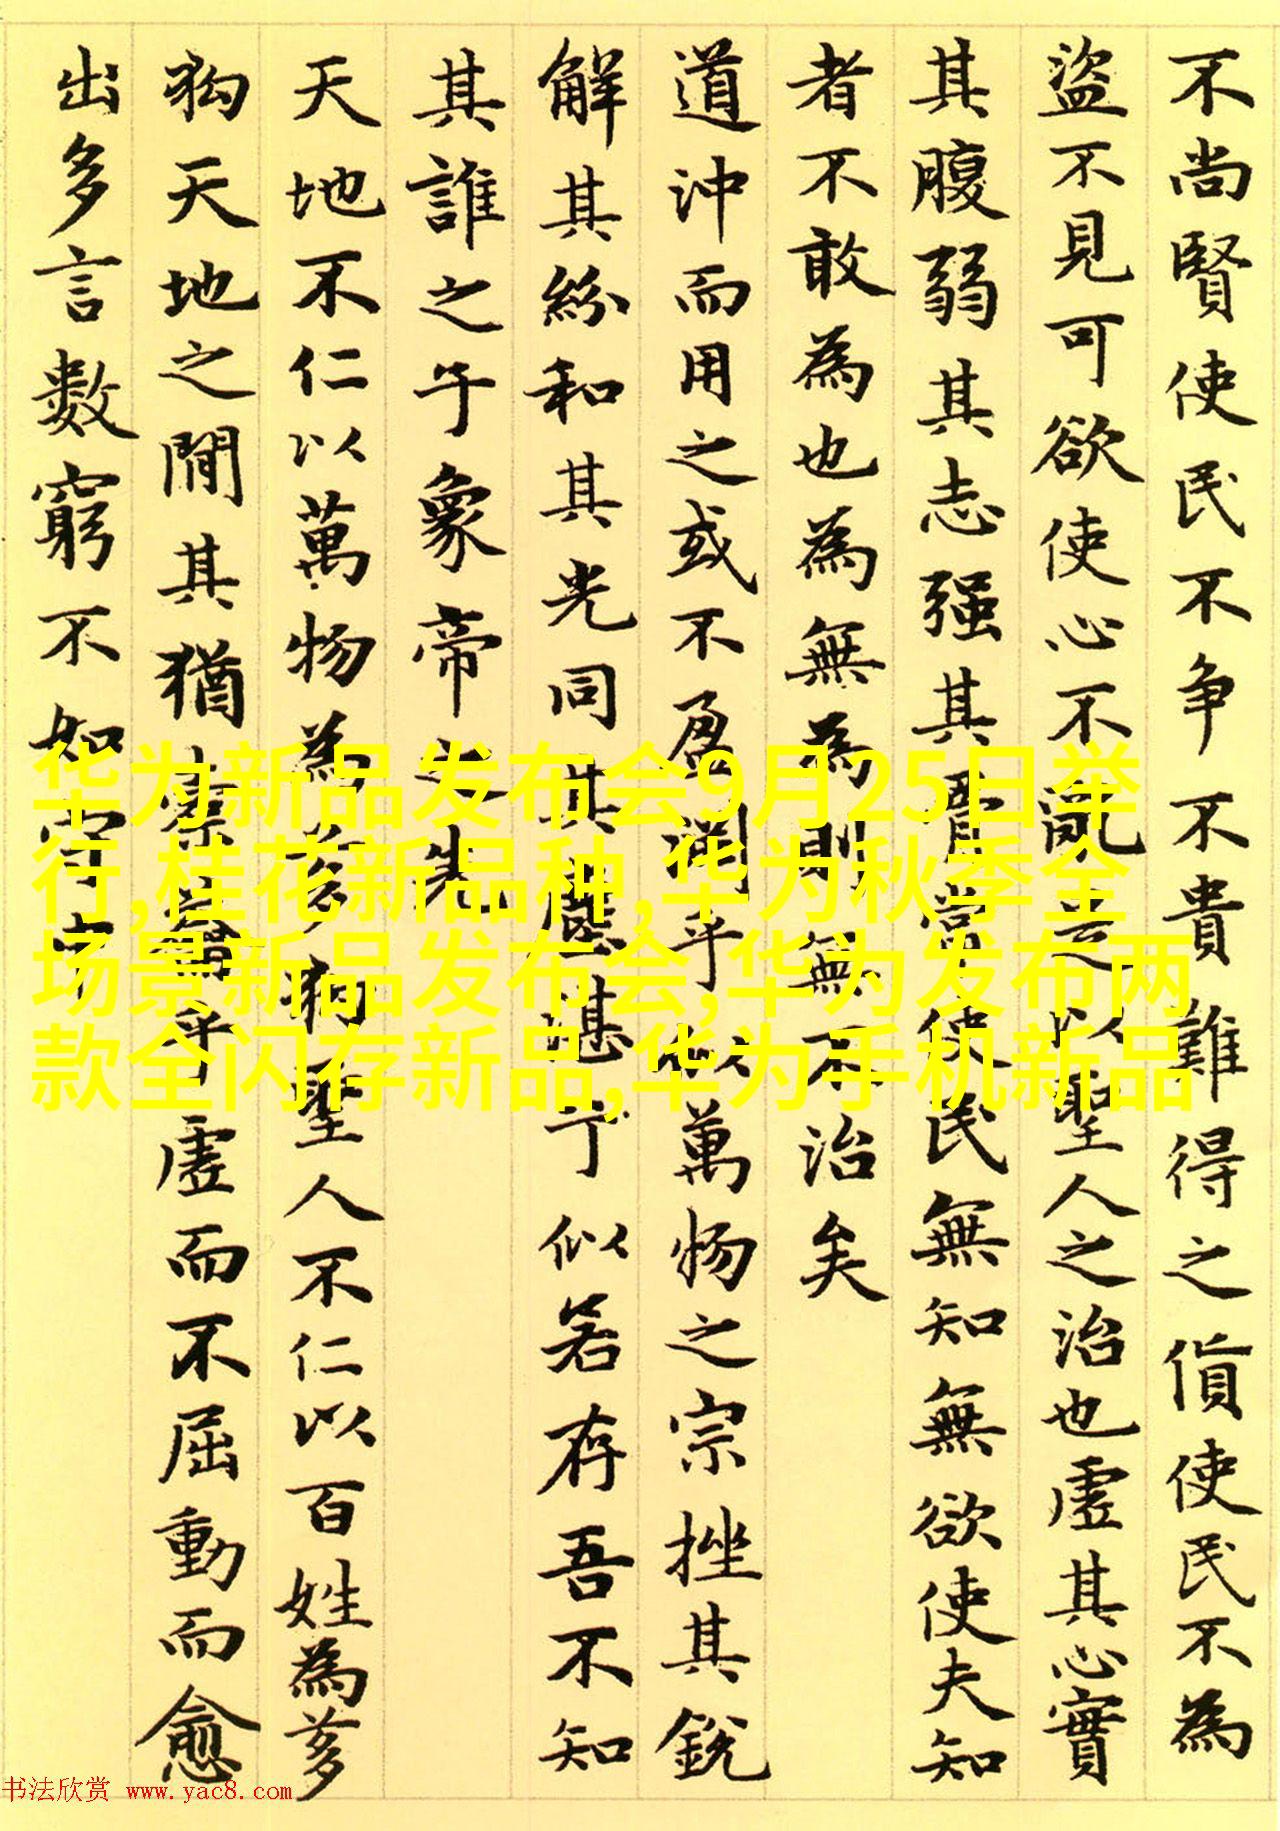 不尚賢使民不争不貴難得之貨使民不為
盜不見可欲使心不亂是以聖人之治也虛其心實
其腹弱其志强其骨當使民無知無欲使夫知
者不敢為也為無為則無不治矣
道沖而用之或不盈淵乎似萬物之宗挫其銳
解其紛和其光同其塵湛兮似若存吾不知
其誰之子象帝之先
天地不仁以萬物為芻狗聖人不仁以百姓為芻
狗天地之間其猶橐籥乎虛而不屈動而愈
出多言數窮不如守中
华为新品发布会9月25日举
行,桂花新品种,华为秋季全
场景新品发布会,华为发布两
款全闪存新品,华为手机新品
书法欣赏 www.yac8.com